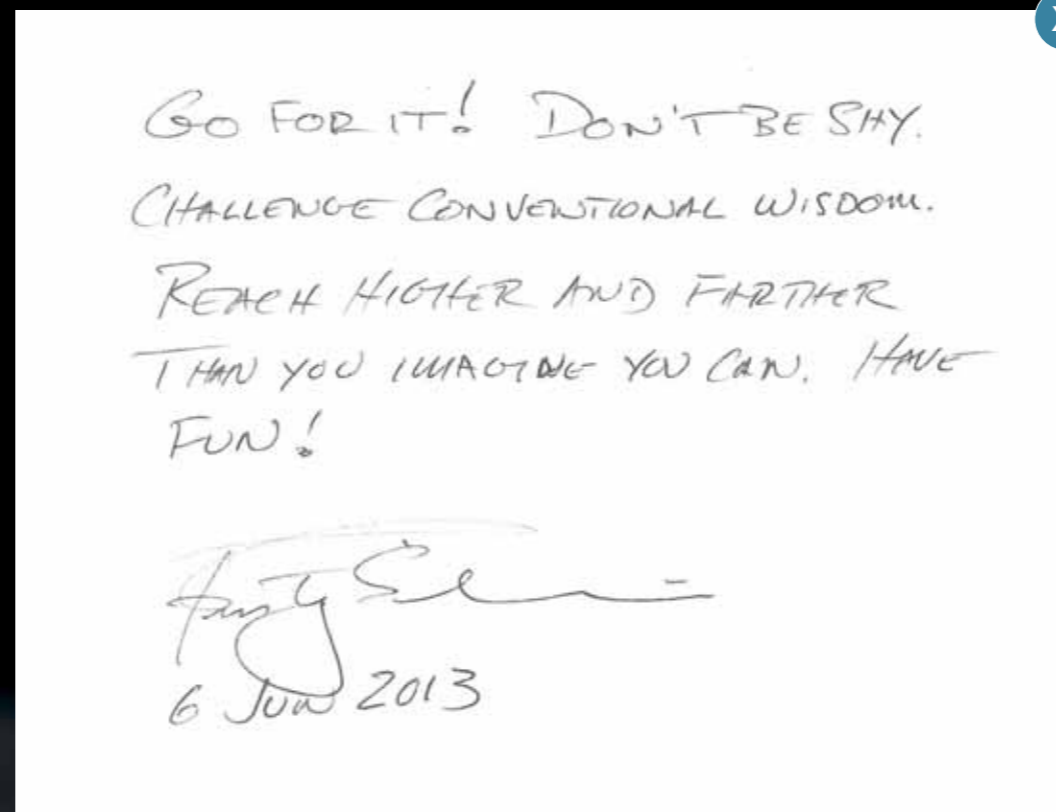 GO FOR IT! DON'T BE SHY.
CHALLENGE CONVENTIONAL WISDOM.
REACH HIGHER AND FARTHER
THAN YOU IMAGINE YOU CAN. HAVE
FUN!
6 JUN 2013